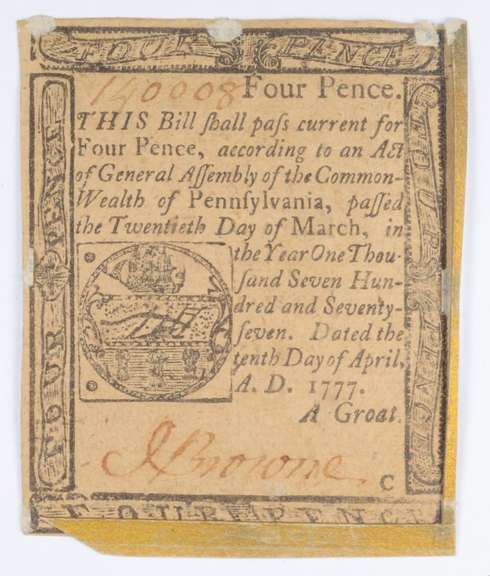 FOUR PENCE
140008 Four Pence.
THIS Bill ſhall paſs current for
Four Pence, according to an Act
of General Aſſembly of the Common-
Wealth of Pennſylvania, paſſed
the Twentieth Day of March, in
the Year One Thou-
ſand Seven Hun-
dred and Seventy-
ſeven. Dated the
tenth Day of April,
A. D. 1777.
A Groat.
J Browne
C
FOUR PENCE
FOUR PENCE
FOUR PENCE